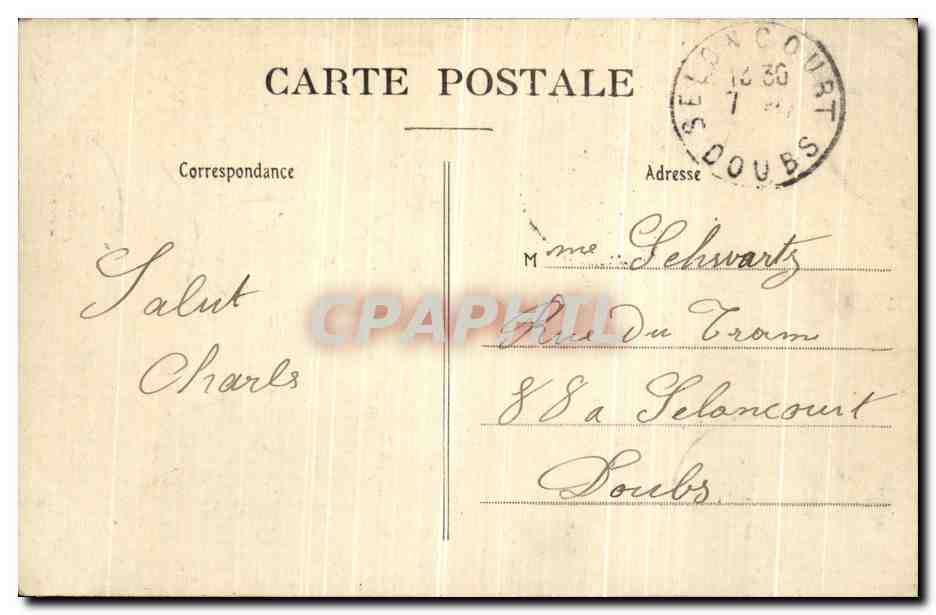 CARTE POSTALE
SELONCOURT
13 30
7
DOUBS
Correspondance
Adresse
Mme Schwartz
Salut
Rue Du Tram
Charls
88a Seloncourt
Doubs
CPAPHIL